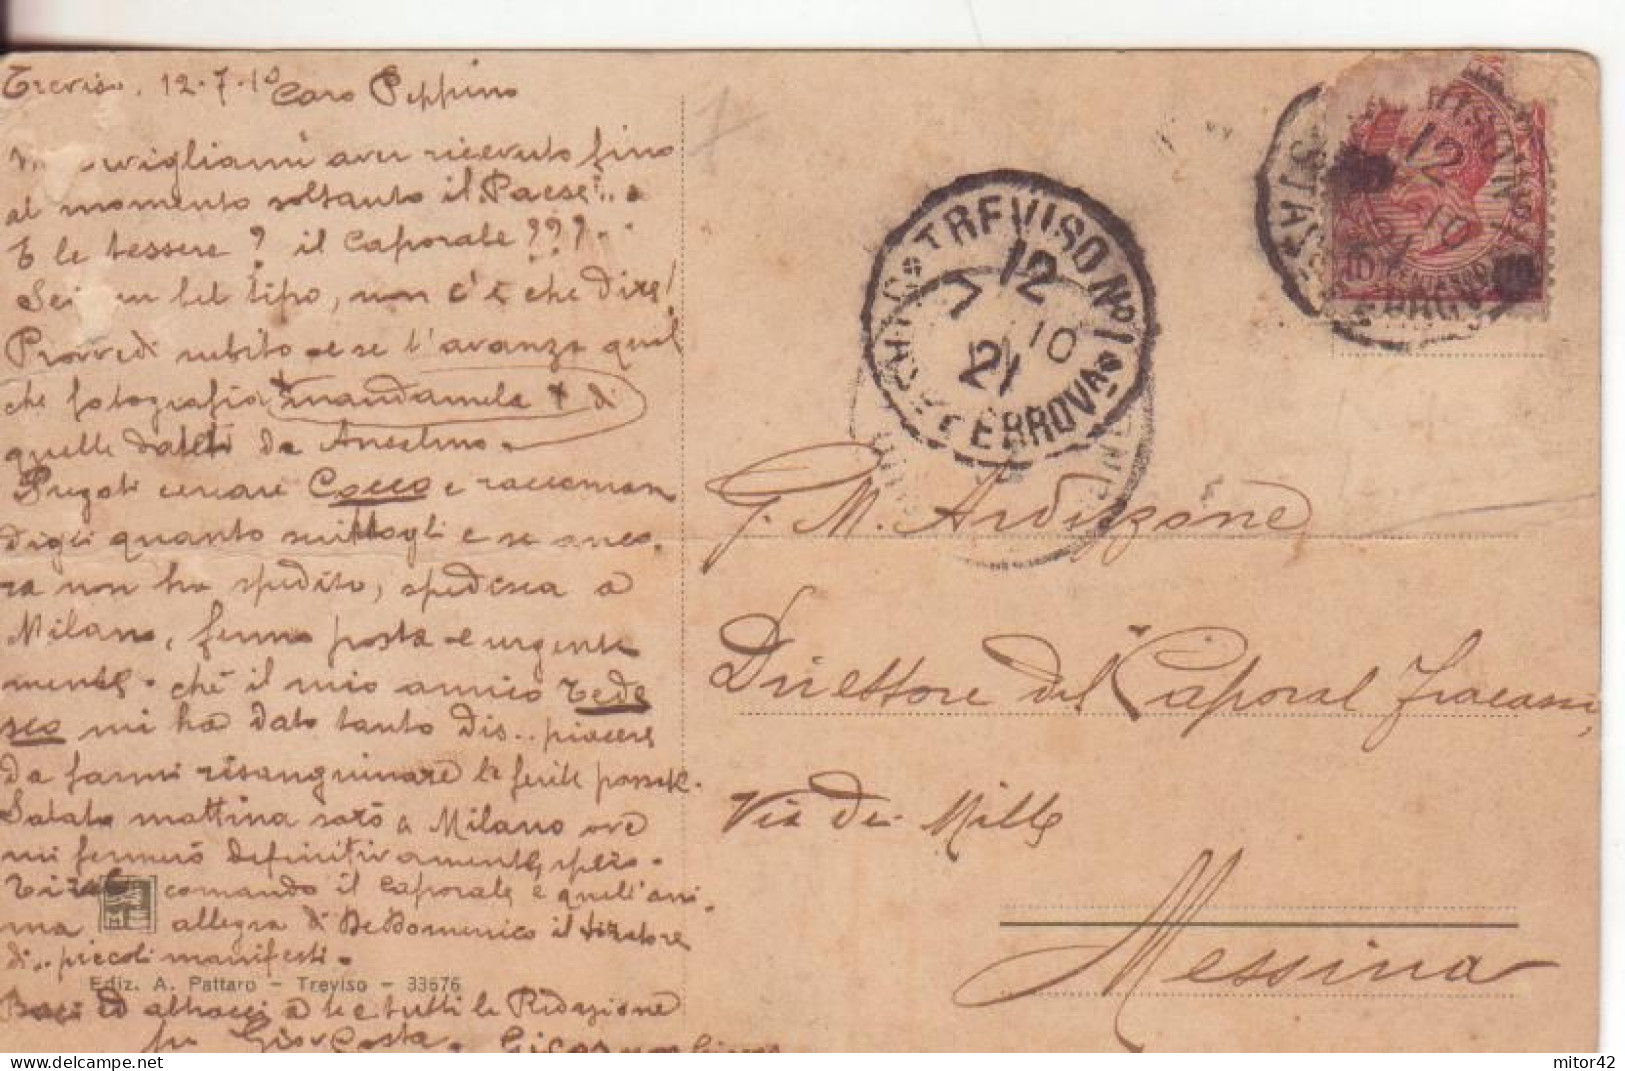 Treviso, 12-7-10 Caro Peppino
aver ricevuto fino
al momento soltanto il Paese!..
E le tessere? il Caporale???..
Sei un bel tipo, non c'è che dire!
Provvedi subito e se t'avanza qual
che fotografia mandamela di
quelle da Anselmo.
Pregoti cercare Cocco e raccoman
digli quanto scrittogli e se anco.
ra non ha spedito, spedisca a
Milano, fermo posta e urgente
mente. ché il mio amico Tede
sco mi ha dato tanto dis.. piacere
da farmi risanguinare le ferite passate.
Sabato mattina sarò a Milano ove
mi fermerò definitivamente, spero.
comando il Caporale e quell'ani.
ma allegra di De Domenico il tiratore
di.. piccoli manifesti.
Ediz. A. Pattaro - Treviso - 33676
Baci ed abbracci a te e tutti la Redazione
TREVISO No 1
12
7 10
21
FERROVIA
12
10
G. M. Arduzzone
Direttore del "Caporal Fracassa
Via dei Mille
Messina
mitor42